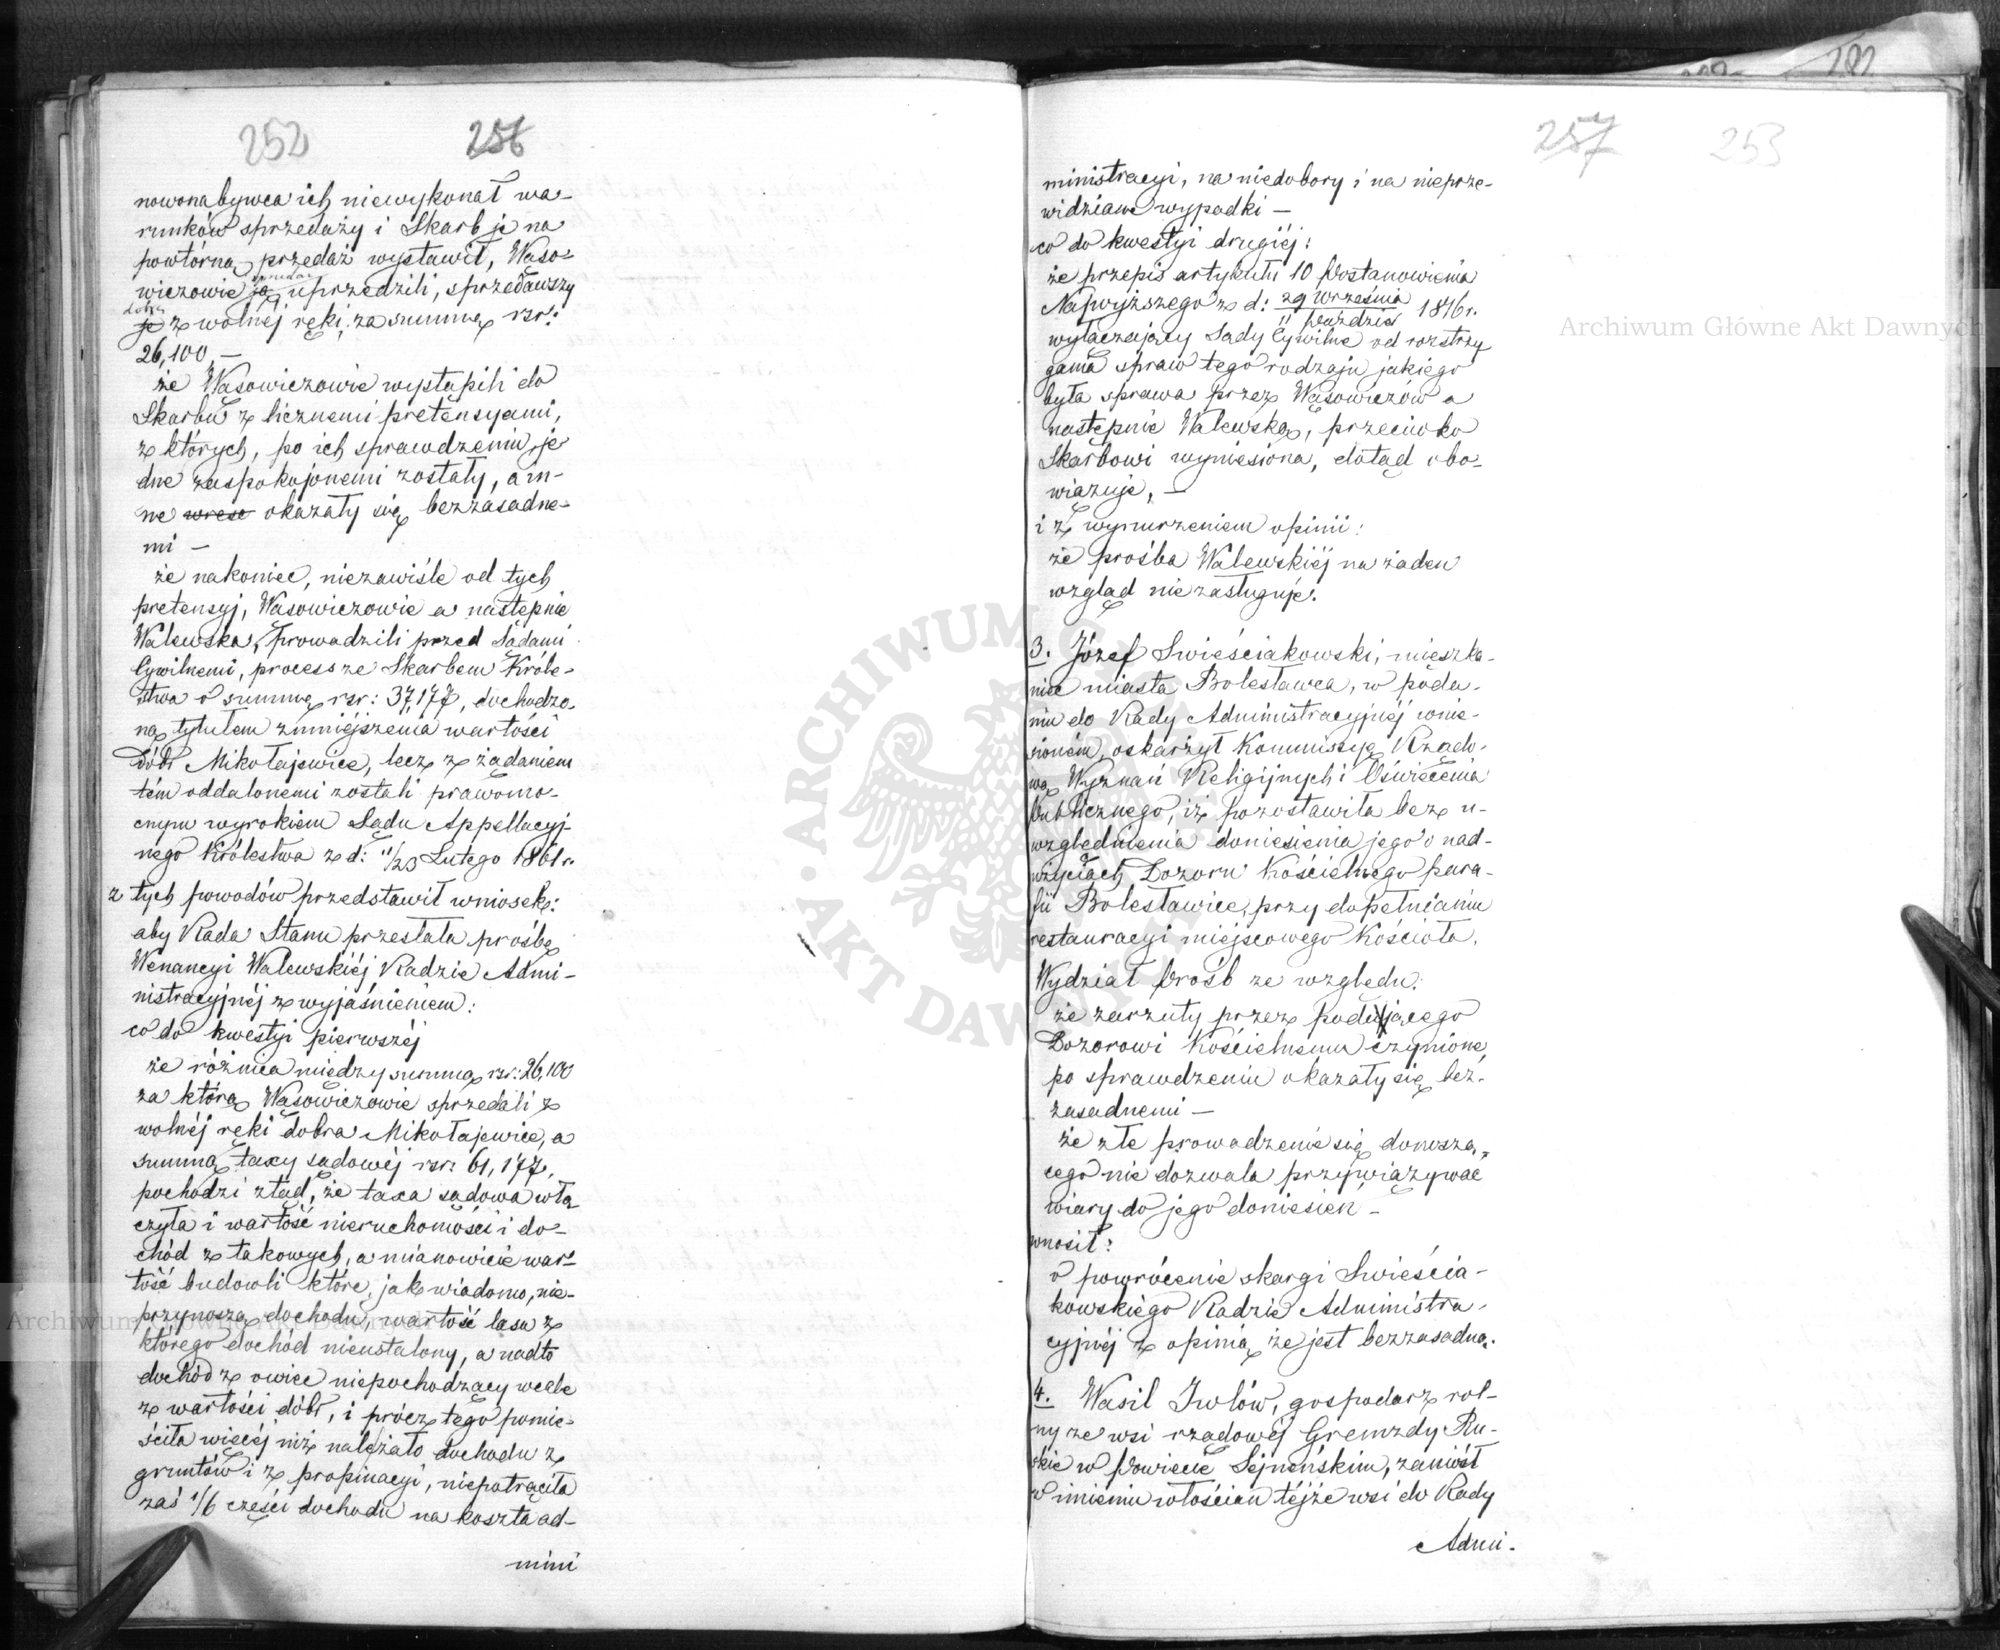 252 256
nowonabywca ich niewykonał wa-
runków sprzedaży i Skarb je na
powtórną przedaż wystawił, Wąso-
wiczowie ją uprzedzili, sprzedawszy
dobra
je z wolnéj ręki za summę rsr:
26,100, —
że Wąsowiczowie wystąpili do
Skarbu z licznemi pretensyami,
z których, po ich sprawdzeniu, je
dne zaspokojonemi zostały, a in-
ne okazały się bezzasadne-
mi —
że nakoniec, niezawiśle od tych
pretensyj, Wąsowiczowie a następnie
Walewska, prowadzili przed Sądami
Cywilnemi, process ze Skarbem Króle-
stwa o summę rsr: 37,177, dochodzo-
ną tytułem zmniejszenia wartości
Dóbr Mikołajewice, lecz z żądaniem
tém oddalonemi zostali prawomo-
cnym wyrokiem Sądu Appellacyj-
nego Królestwa z d: 11/23 Lutego 1861 r.
z tych powodów przedstawił wniosek:
aby Rada Stanu przesłała prośbę
Wenancyi Walewskiéj Radzie Admi-
nistracyjnéj z wyjaśnieniem:
co do kwestyi pierwszéj
że różnica między summą rsr: 26,100
za którą Wąsowiczowie sprzedali z
wolnéj ręki dobra Mikołajewice, a
summą taxy sądowéj rsr: 61,177,
pochodzi ztąd, że taxa sądowa włą
czyła i wartość nieruchomości i do-
chód z takowych, a mianowicie war-
tość budowli które, jak wiadomo, nie-
przynoszą dochodu, wartość lasu z
którego dochód nieustalony, a nadto
dochód z owiec niepochodzący wcale
z wartości dóbr, i prócz tego pomie-
ściła więcéj niż należało dochodu z
gruntów i z propinacyi, niepotrąciła
zaś 1/6 części dochodu na koszta ad-
mini
257 253
ministracyi, na niedobory i na nieprze-
widziane wypadki —
co do kwestyi drugiéj:
że przepis artykułu 10 Postanowienia
Najwyższego z d: 29 Września 1846 r.
11 Paździer
wyłączający Sądy Cywilne od rozstrzy
gania spraw tego rodzaju jakiego
była sprawa przez Wąsowiczów a
następnie Walewską, przeciwko
Skarbowi wyniesiona, dotąd obo-
wiązuje, —
i z wynurzeniem opinii:
że prośba Walewskiéj na żaden
wzgląd nie zasługuje.
3. Józef Swieściakowski, mieszka-
niec miasta Bolesławca, w poda-
niu do Rady Administracyjnéj wnie-
sioném, oskarżył Kommissyę Rządo-
wą Wyznań Religijnych i Oświecenia
Publicznego, iż pozostawiła bez u-
względnienia doniesienia jego o nad-
użyciach Dozoru Kościelnego para-
fii Bolesławiec, przy dopełnianiu
restauracyi miejscowego Kościoła.
Wydział Próśb ze względu:
że zarzuty przez podającego
Dozorowi Kościelnemu czynione,
po sprawdzeniu okazały się bez-
zasadnemi —
że złe prowadzenie się donoszą-
cego nie dozwala przywiązywać
wiary do jego doniesień —
wnosił:
o powrócenie skargi Swieścia-
kowskiego Radzie Administra-
cyjnéj z opinią, że jest bezzasadną.
4. Wasil Iwlów, gospodarz rol-
ny ze wsi rządowéj Gremzdy Ru-
skie w Powiecie Sejneńskim, zaniósł
w imieniu włościan téjże wsi do Rady
Admi-
Archiwum Główne Akt Dawnych